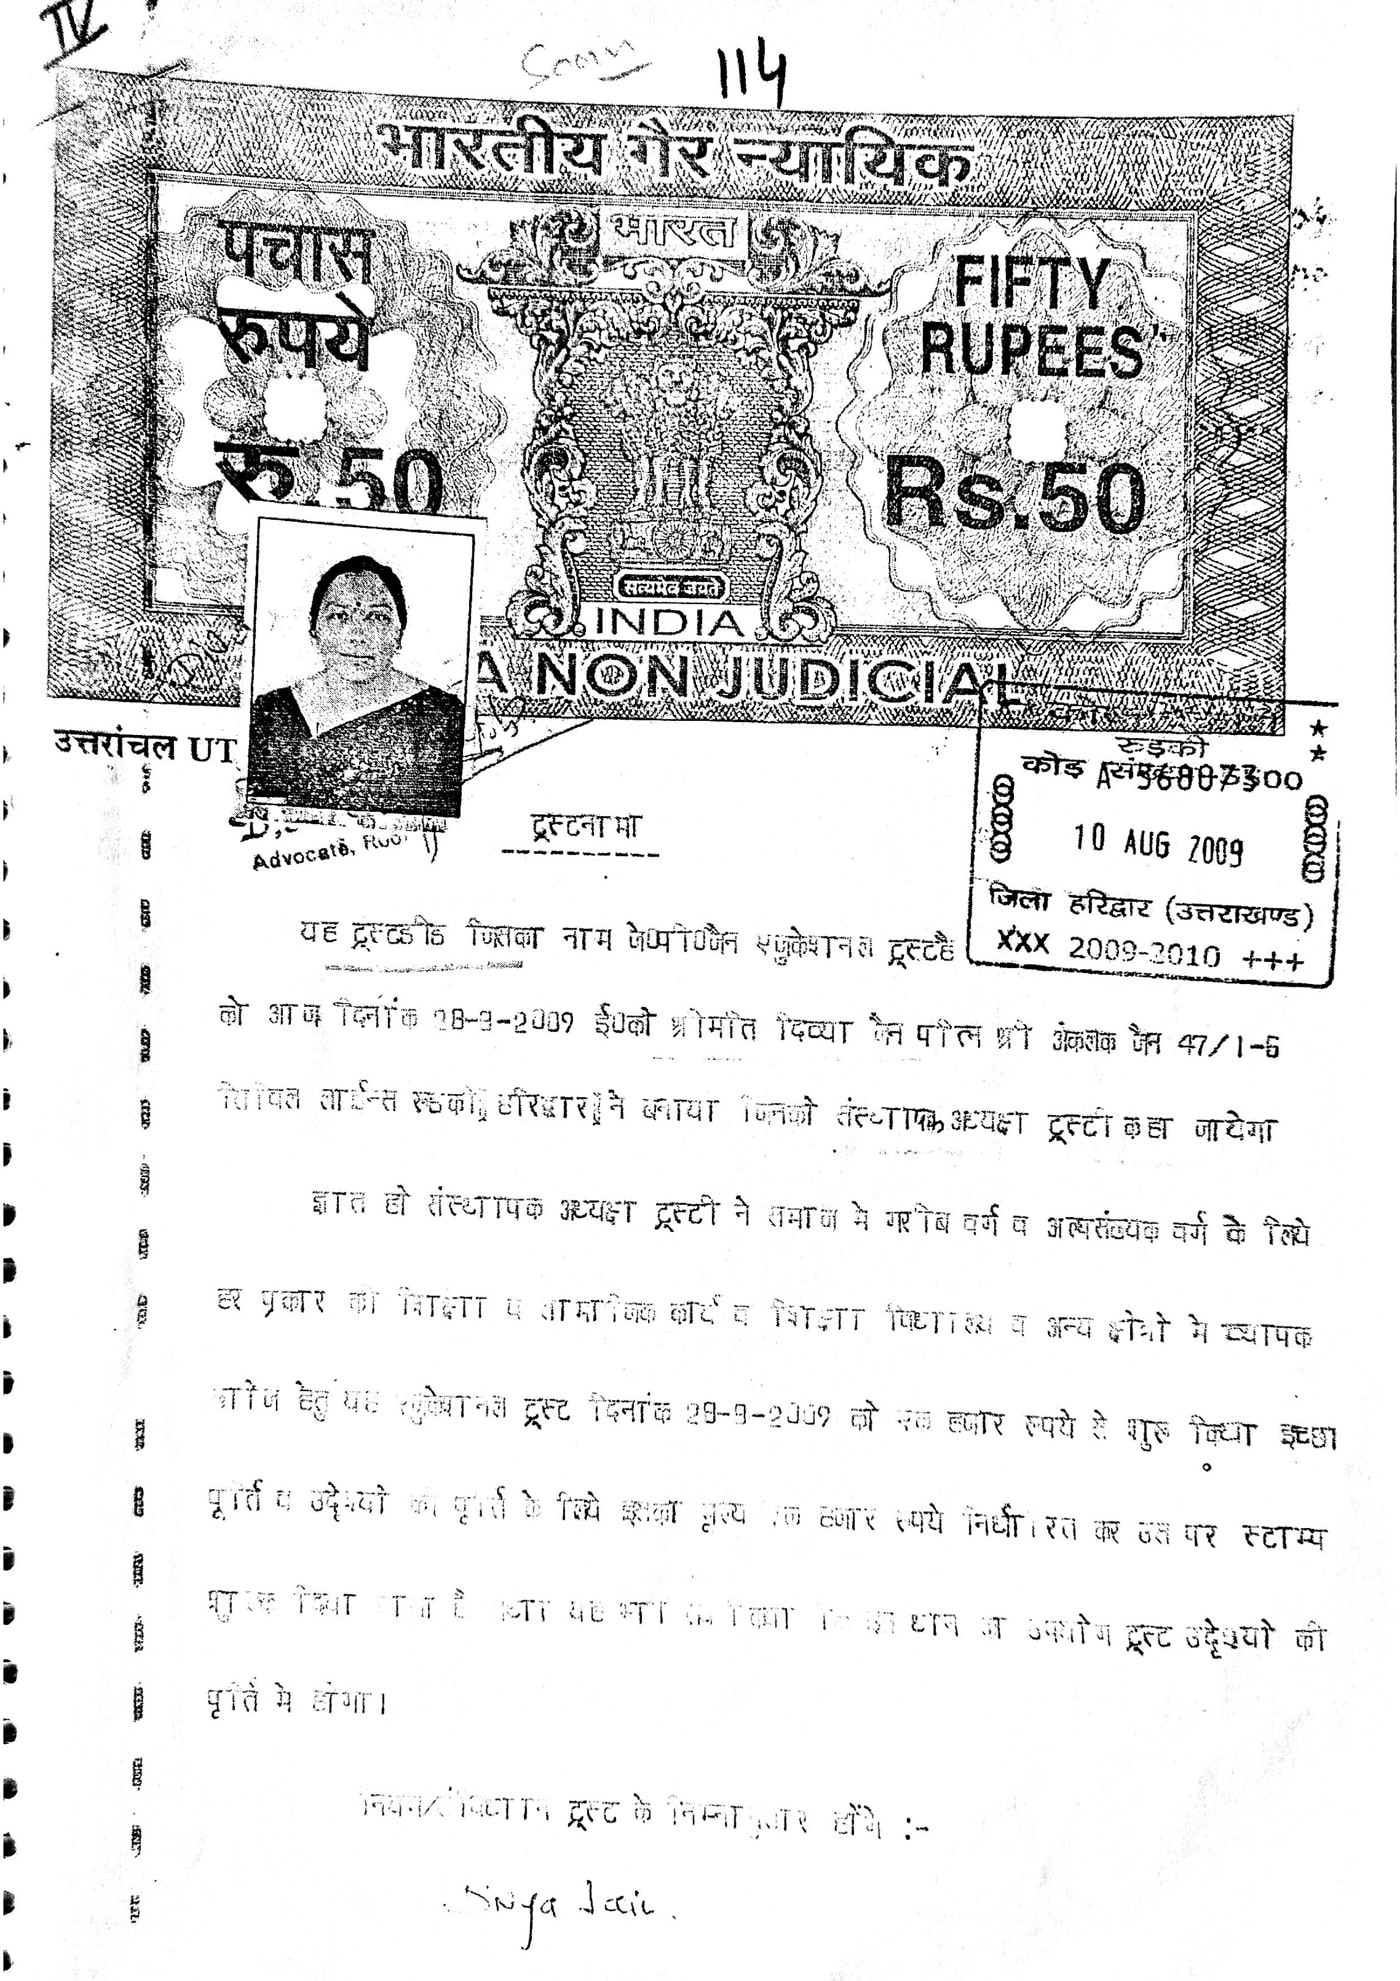 IV
114
भारतीय गैर न्यायिक
भारत
पचास
रुपये
रु.50
FIFTY
RUPEES
Rs.50
सत्यमेव जयते
INDIA
A NON JUDICIAL
उत्तरांचल UT
रुड़की
कोड
10 AUG 2009
जिला हरिद्वार (उत्तराखण्ड)
XXX 2009-2010 +++
Advocate,
ट्रस्टनामा
यह ट्रस्टडीड जिसका नाम जे0पी0जैन एजुकेशनल ट्रस्टहै
को आज दिनांक 28-8-2009 ई0को श्रीमति दिव्या जैन पत्नि श्री अंकलक जैन 47/1-6
सिविल लाईन्स रूडकी हरिद्वार ने बनाया जिनको संस्थापक अध्यक्षा ट्रस्टी कहा जायेगा
ज्ञात हो संस्थापक अध्यक्षा ट्रस्टी ने समाज मे गरीब वर्ग व अल्पसंख्यक वर्ग के लिये
हर प्रकार की शिक्षा व सामाजिक कार्य व शिक्षा विधालय व अन्य क्षेत्रो मे व्यापक
हेतु यह एजुकेशनल ट्रस्ट दिनांक 28-8-2009 को एक हजार रूपये से शुरू किया इच्छा
पूर्ति व उद्देश्यो की पूर्ति के लिये इसका मूल्य एक हजार रूपये निर्धारित कर उस पर स्टाम्प
शुल्क दिया है यह उपयोग ट्रस्ट उद्देश्यो की
पूर्ति मे होगा।
नियम/संविधान ट्रस्ट के निम्नानुसार होंगे :-
Divya Jain.